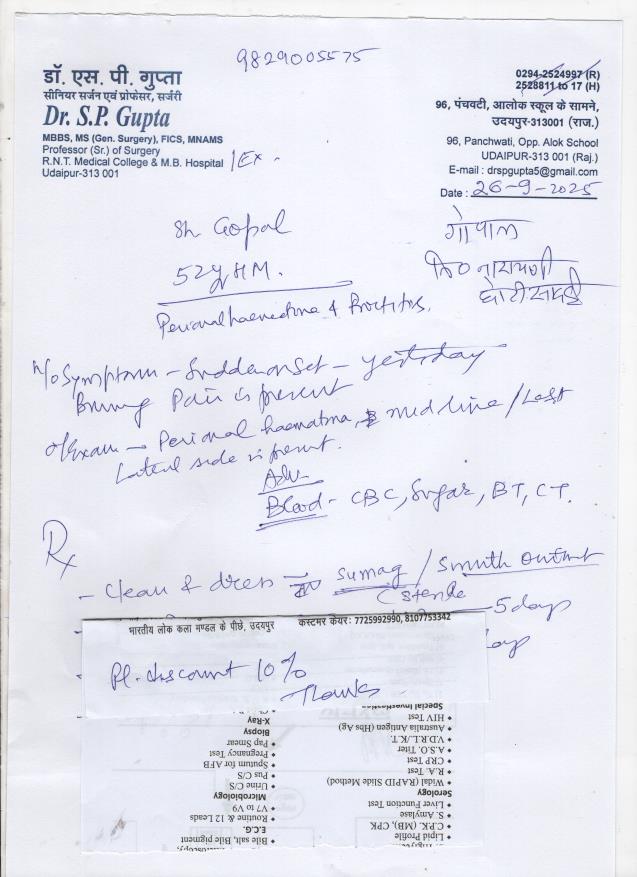 9829005575
डॉ. एस. पी. गुप्ता
सीनियर सर्जन एवं प्रोफेसर, सर्जरी
Dr. S.P. Gupta
MBBS, MS (Gen. Surgery), FICS, MNAMS
Professor (Sr.) of Surgery
R.N.T. Medical College & M.B. Hospital /Ex.
Udaipur-313 001
0294-2524997 (R)
2528811 to 17 (H)
96, पंचवटी, आलोक स्कूल के सामने,
उदयपुर-313001 (राज.)
96, Panchwati, Opp. Alok School
UDAIPUR-313 001 (Raj.)
E-mail : drspgupta5@gmail.com
Date : 26-9-2025
Sh Gopal
52y HM.
गोपाल
नारायणी
Perianal haematoma & Proctitis.
H/o Symptom - Sudden onset - yesterday
Burning Pain is present
O/Exam - Perianal haematoma, midline / Left
Lateral side is present.
Adv
Blood - CBC, Sugar, BT, CT.
Rx
- Clean & dress sumag / smuth ointment
5 days
day
भारतीय लोक कला मण्डल के पीछे, उदयपुर कस्टमर केयर: 7725992990, 8107753342
Pl. discount 10%
Thanks
Special Investigation
• HIV Test
• Australia Antigen (Hbs Ag)
• V.D.R.L./K.T.
• A.S.O. Titer
• CRP Test
• R.A. Test
• Widal (RAPID Slide Method)
Serology
• Liver Function Test
• S. Amylase
• C.P.K. (MB), CPK
• Lipid Profile
X-Ray
Biopsy
• Pap Smear
• Pregnancy Test
• Sputum for AFB
• Pus C/S
• Urine C/S
Microbiology
• V7 to V9
• Routine & 12 Leads
E.C.G.
• Bile salt, Bile pigment,